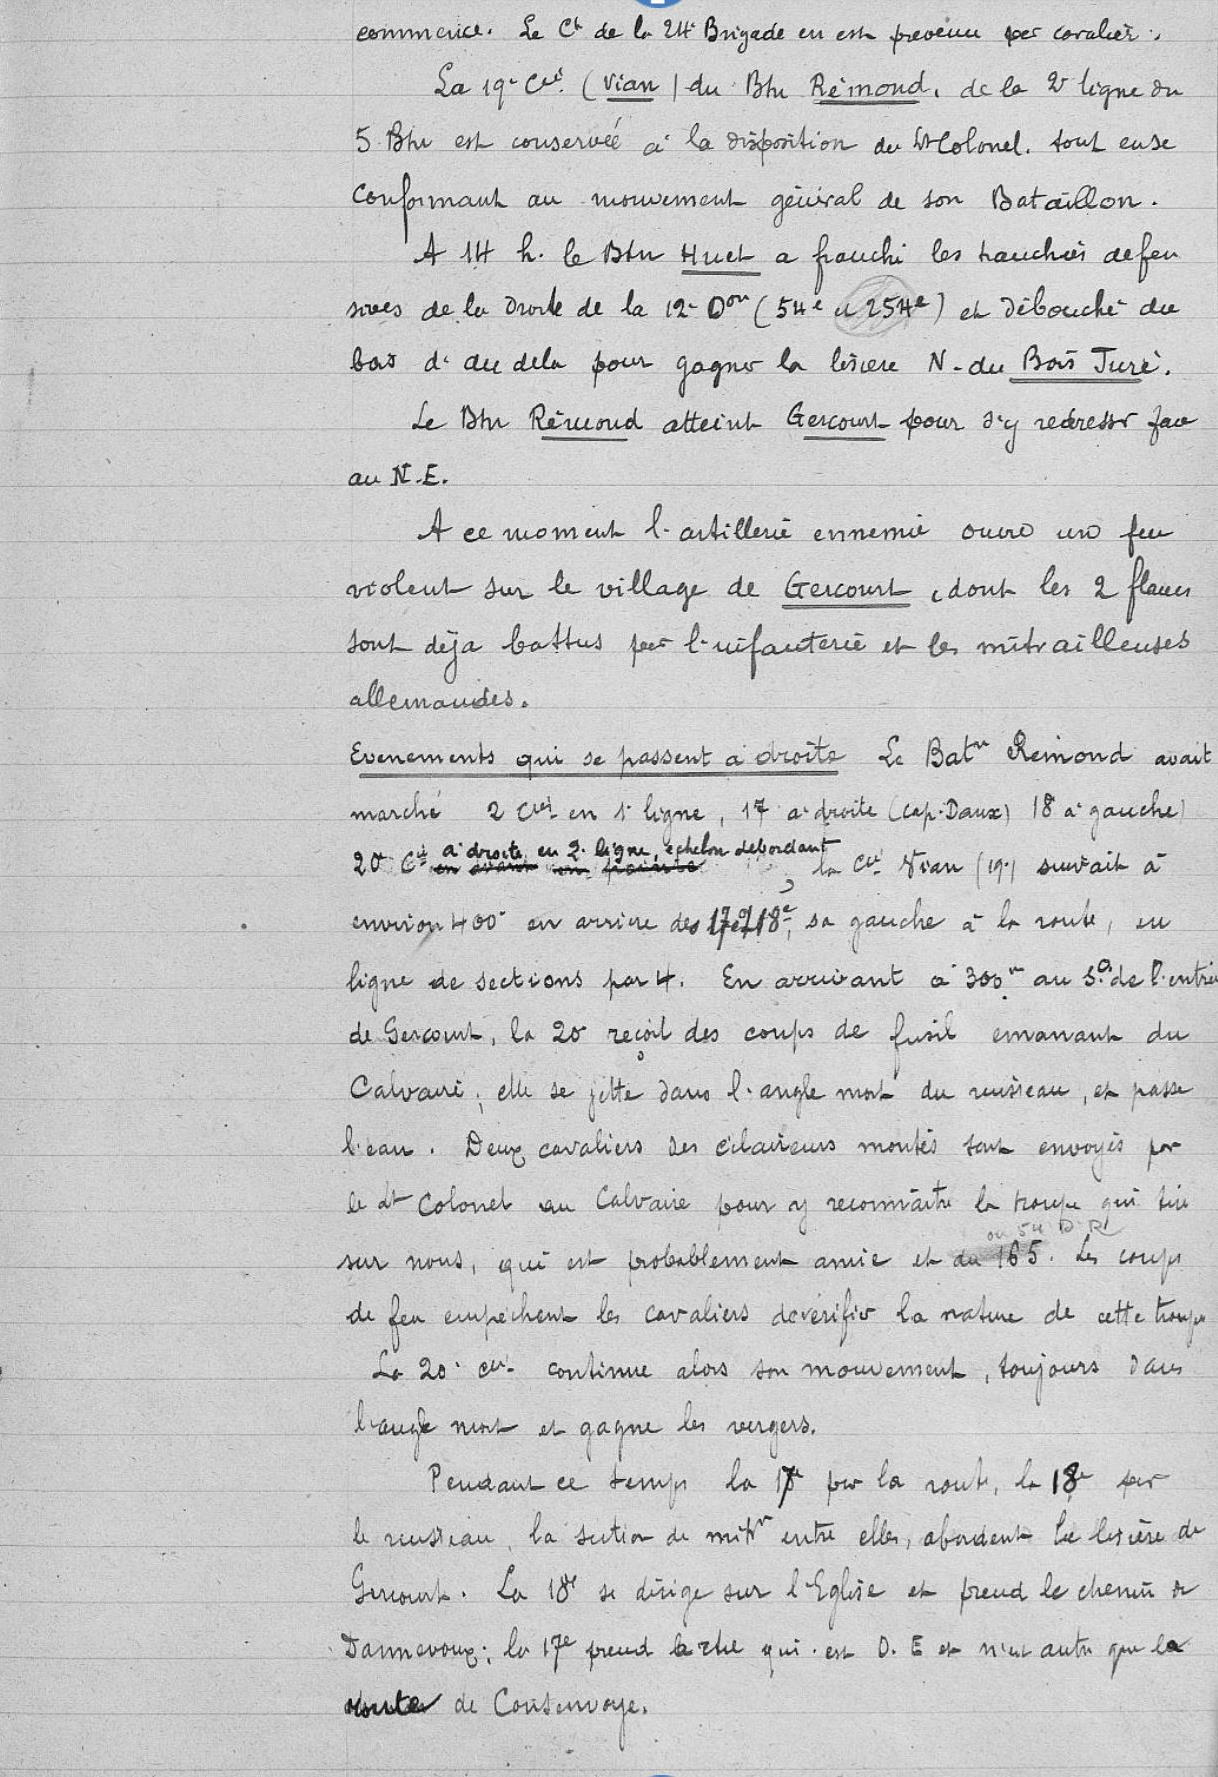 commence. Le Ct de la 24e Brigade en est prévenu par cavalier.
La 19e Cie (Vian) du Btn Rémond, de la 2e ligne du
5 Btn est conservée à la disposition du Lt Colonel. tout en se
conformant au mouvement général de son Bataillon.
A 14 h. le Btn Huet a franchi les tranchées défen
sives de la droite de la 12e Don (54e et 254e) et débouché du
bois d' au dela pour gagner la lisière N. du Bois Juré.
Le Btn Rémond atteint Gercourt pour s'y redresser face
au N.E.
A ce moment l'artillerie ennemie ouvre un feu
violent sur le village de Gercourt, dont les 2 flancs
sont déja battus par l'infanterie et les mitrailleuses
allemandes.
Evenements qui se passent à droite Le Batn Rémond avait
marché 2 Cies en 1e ligne, 17 à droite (Cap. Daux) 18 à gauche)
à droite, en 2e ligne, échelon débordant
20e Cie en avant en pointe, la Cie Vian (19e) suivait à
environ 400m en arrière des 17e et 18e, sa gauche à la route, en
ligne de sections par 4. En arrivant à 300m au S.O. de l'entrée
de Gercourt, la 20e reçoit des coups de fusil émanant du
Calvaire; elle se jette dans l'angle mort du ruisseau, et passe
l'eau. Deux cavaliers des éclaireurs montés sont envoyés par
le Lt Colonel au Calvaire pour y reconnaître la troupe qui tire
ou 54 D.R
sur nous, qui est probablement amie et du 165. Les coups
de feu empêchent les cavaliers de vérifier la nature de cette troupe
La 20e Cie continue alors son mouvement, toujours dans
l'angle mort et gagne les vergers.
Pendant ce temps la 17e par la route, la 18e par
le ruisseau, la section de mitr entre elles, abordent la lisière de
Gercourt. La 18e se dirige sur l'Eglise et prend le chemin de
Dannevoux; la 17e prend la rue qui est O.E et n'est autre que la
route de Consenvoye.